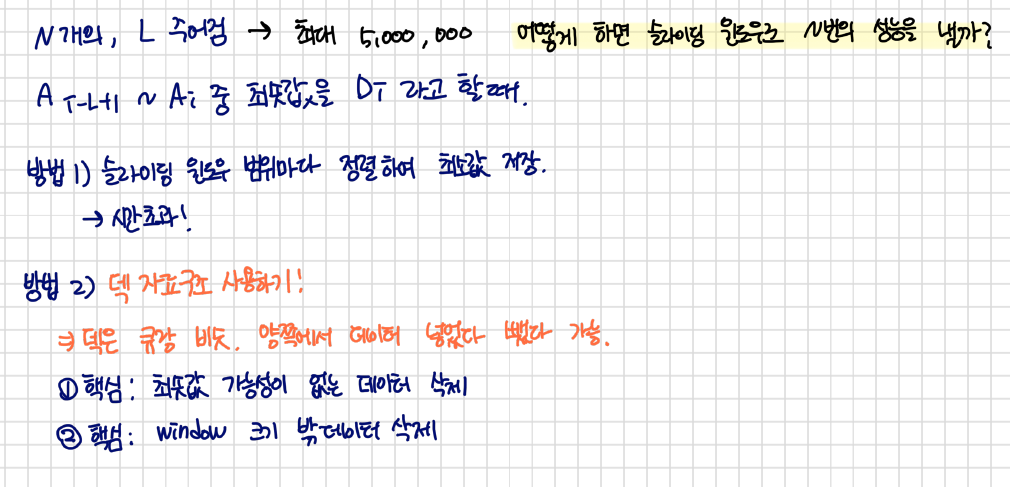 N개의, L 주어짐 → 최대 5,000,000 어떻게 하면 슬라이딩 윈도우로 N번의 성능을 낼까?
A i-L+1 ~ Ai 중 최솟값을 Di 라고 할 때.
방법 1) 슬라이딩 윈도우 범위마다 정렬하여 최소값 저장.
→ 시간초과!
방법 2) 덱 자료구조 사용하기!
⇒ 덱은 큐랑 비슷. 양쪽에서 데이터 넣었다 뺐다 가능.
① 핵심: 최솟값 가능성이 없는 데이터 삭제
② 핵심: window 크기 밖 데이터 삭제